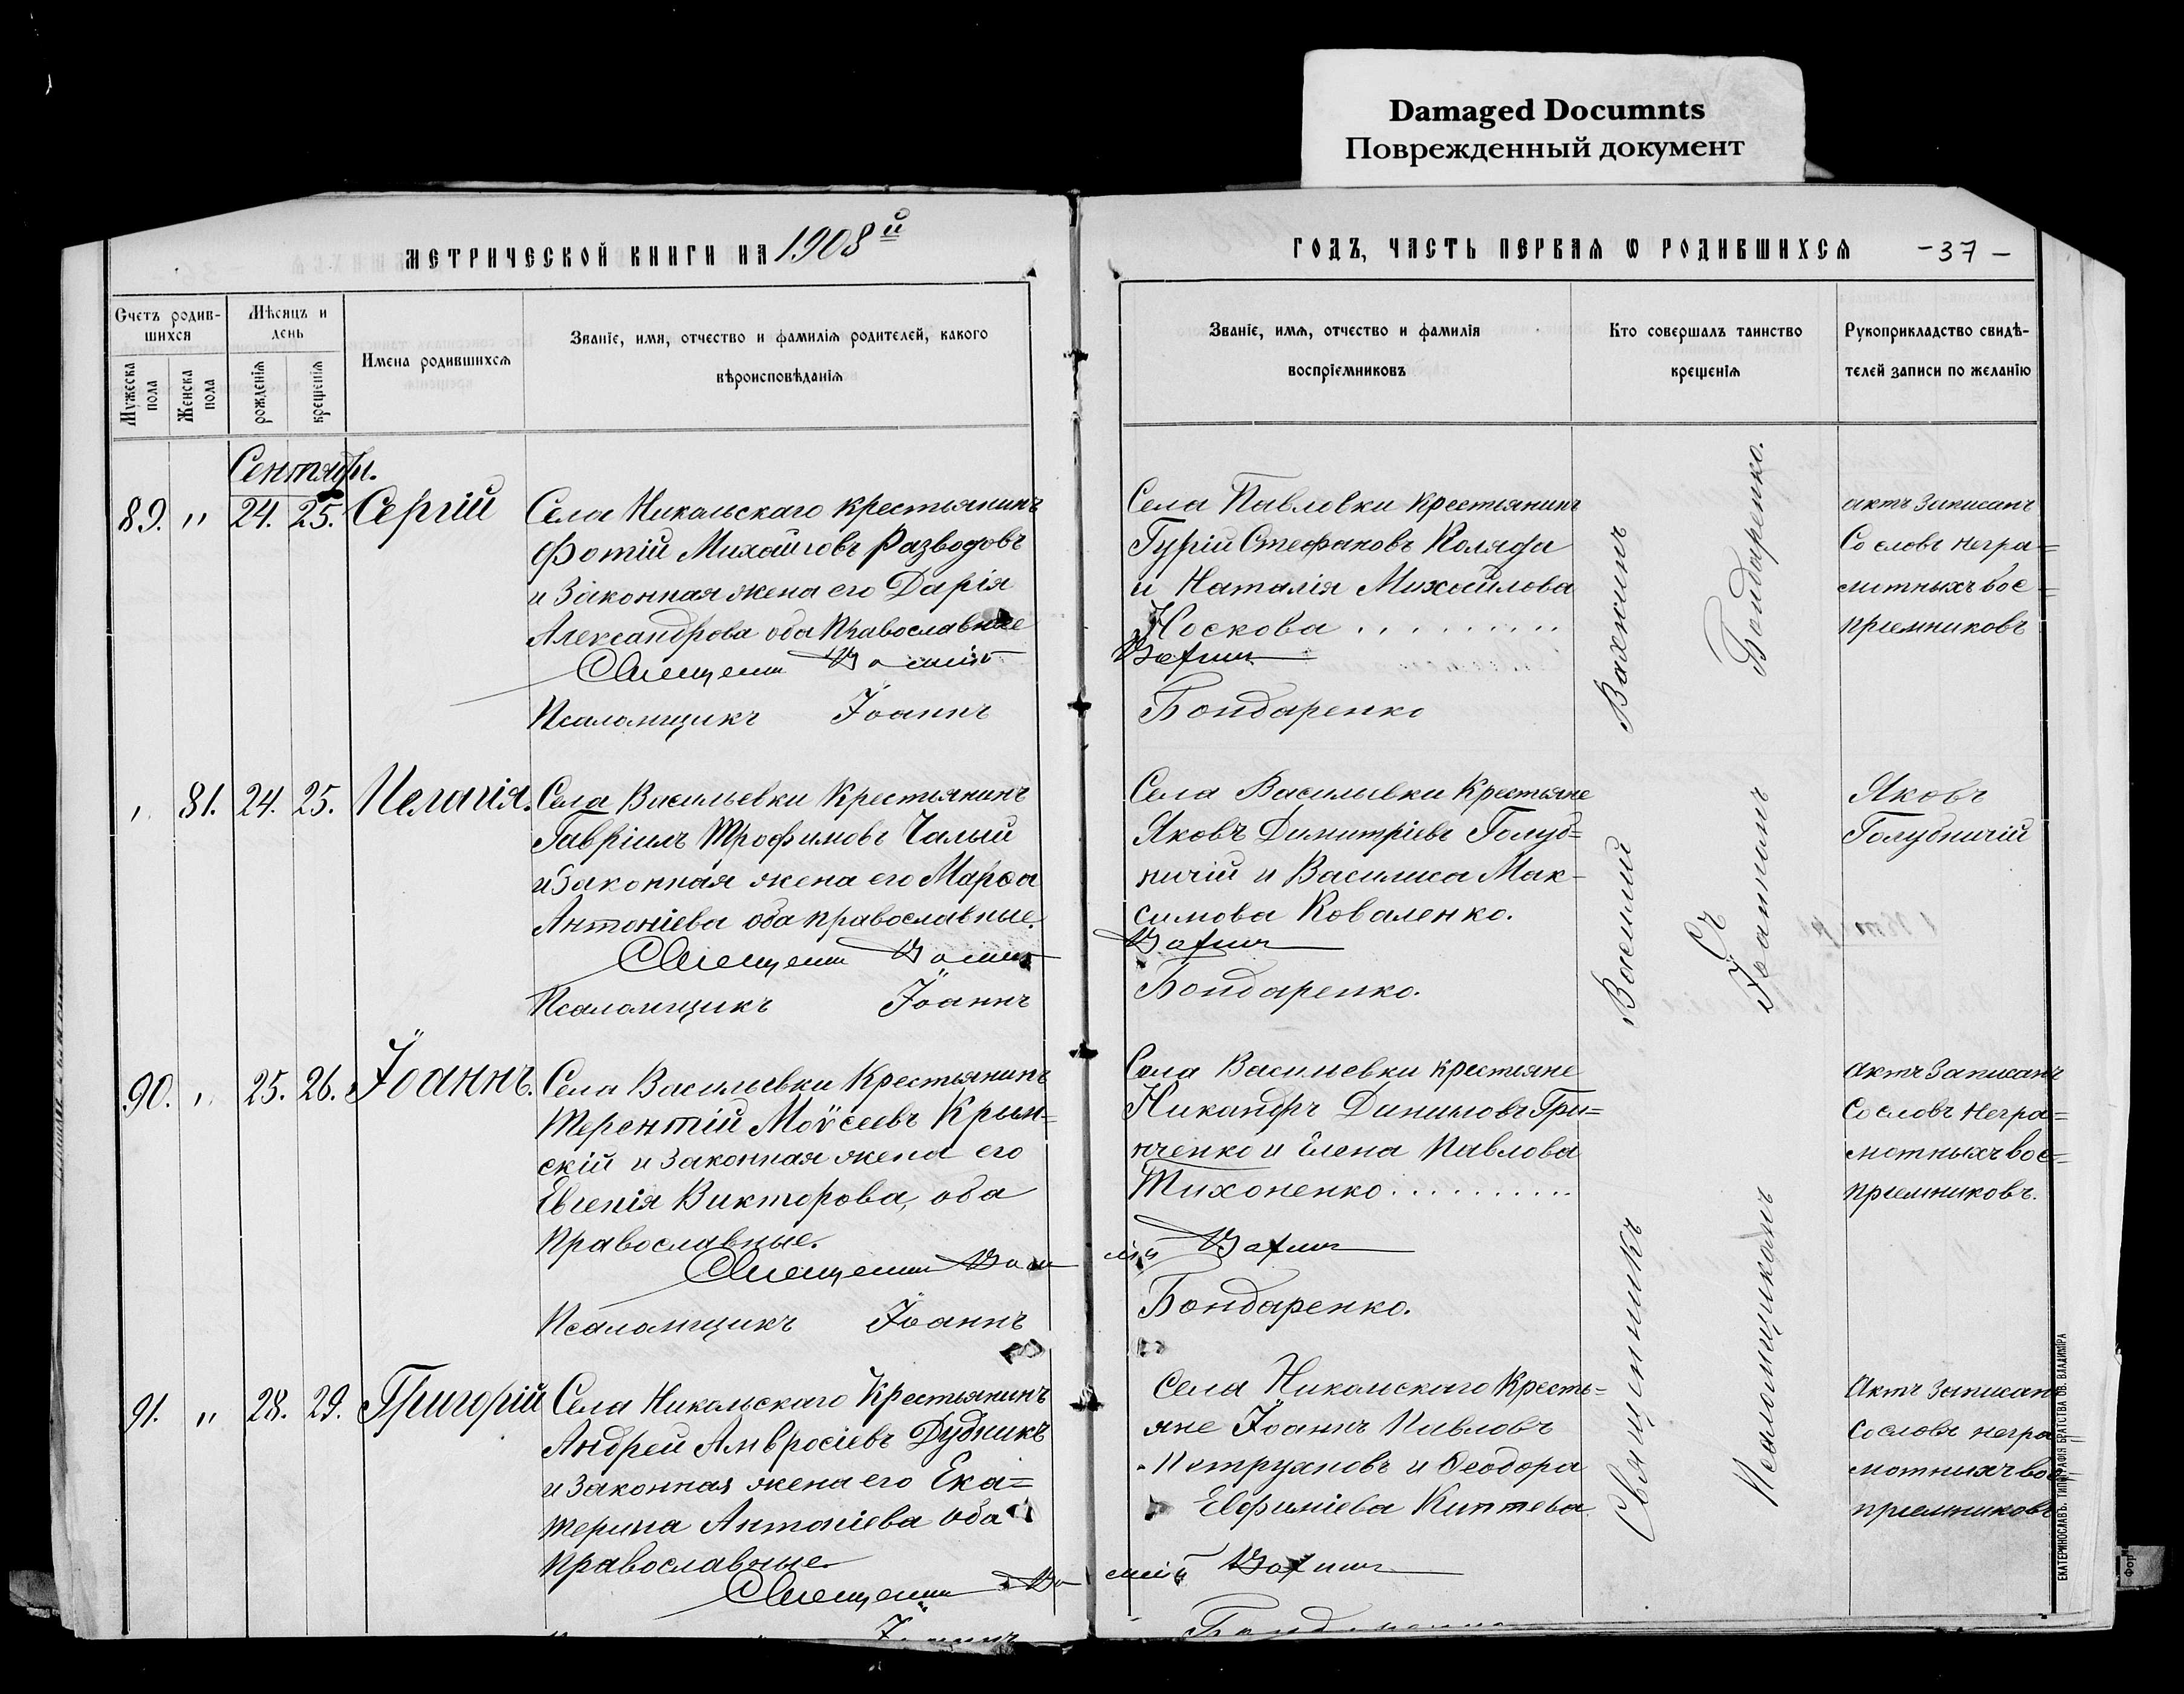 Damaged Documnts
Поврежденный документ
МЕТРИЧЕСКОЙ КНИГИ НА 1908й
ГОДЪ, ЧАСТЬ ПЕРВАЯ Ѡ РОДИВШИХСЯ
-37-
Счетъ родив-
шихся
Мужеска
пола
Женска
пола
Мѣсяцъ и
день
рожденія
крещенія
Имена родившихся
Званіе, имя, отчество и фамилія родителей, какого
вѣроисповѣданія
Званіе, имя, отчество и фамилія
воспріемниковъ
Кто совершалъ таинство
крещенія
Рукоприкладство свидѣ-
телей записи по желанію
Сентябрь.
89. " 24. 25. Сергій
Села Никольскаго крестьянинъ
Фотій Михайловъ Разводовъ
и законная жена его Дарія
Александрова оба православные
Священник Василій
Вахнин
Псаломщикъ Іоаннъ
Бондаренко
Села Павловки крестьянинъ
Гурій Стефановъ Коляда
и Наталія Михайлова
Носкова
актъ записанъ
Со словъ негра=
мотныхъ вос=
пріемниковъ
81. 24. 25. Пелагія.
Села Васильевки крестьянинъ
Гавріилъ Трофимовъ Чалый
и законная жена его Марѳа
Антоніева оба православные.
Священник Василій
Вахнин
Псаломщикъ Іоаннъ
Бондаренко.
Села Васильевки крестьяне
Яковъ Димитріевъ Голуб=
ничій и Василиса Мак-
симова Коваленко.
Яковъ
Голубничій
90. " 25. 26. Іоаннъ.
Села Васильевки крестьянинъ
Терентій Моѵсеевъ Крым=
скій и законная жена его
Евгенія Викторова, оба
православные.
Священник Василій
Вахнин
Псаломщикъ Іоаннъ
Бондаренко.
Села Васильевки крестьяне
Никандръ Даниловъ Гри=
нченко и Елена Павлова
Тихоненко
Актъ записанъ
Со словъ негра=
мотныхъ вос=
пріемниковъ.
91. " 28. 29. Григорій
Села Никольскаго крестьянинъ
Андрей Амвросіевъ Дудникъ
и законная жена его Ека=
терина Антоніева оба
православные
Священник Василій
Вахнин
Іоаннъ
Села Никольскаго кресть=
яне Іоаннъ Павловъ
Петрухновъ и Ѳеодора
Евфиміева Киптева
Актъ записанъ
Со словъ негра=
мотныхъ вос=
пріемниковъ
Священникъ Василій Вахнинъ
Псаломщикомъ Іоанномъ Бондаренко.
Съ
ЕКАТЕРИНОСЛАВЪ. ТИПОГРАФІЯ БРАТСТВА СВ. ВЛАДИМІРА